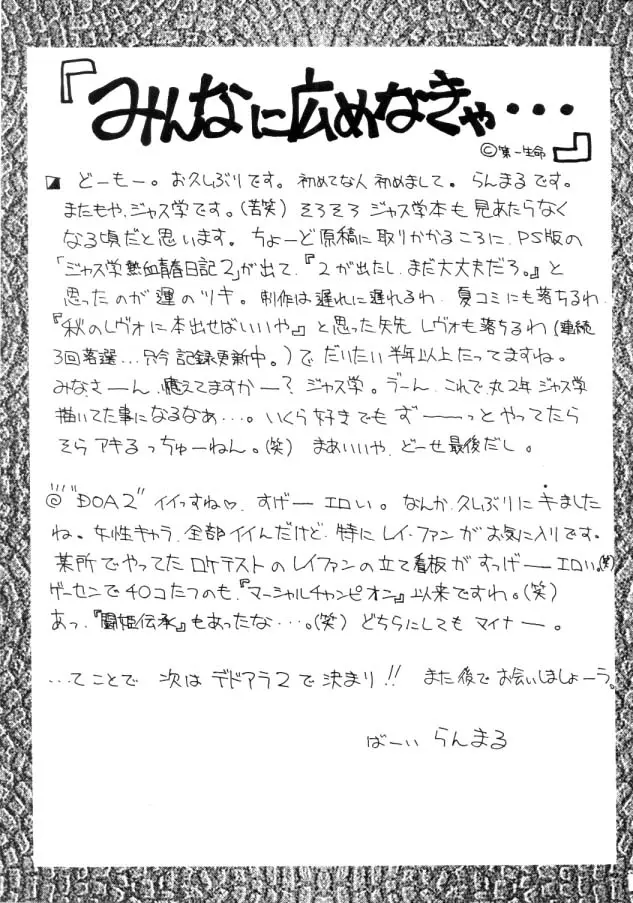 『みんなに広めなきゃ・・・』
©第一生命
どーもー。お久しぶりです。初めてな人 初めまして。らんまるです。
またもや、ジャス学です。(苦笑) そろそろ ジャス学本も 見あたらなく
なる頃だと思います。ちょーど原稿に取りかかるころに、PS版の
「ジャス学 熱血青春日記2」が出て、『2が出たし、まだ大丈夫だろ。』と
思ったのが 運のツキ。制作は遅れに遅れるわ、夏コミにも落ちるわ、
『秋のレヴォに本出せばいいや』と思った矢先 レヴォも落ちるわ (連続
3回落選…只今 記録更新中。) で だいたい 半年以上たってますね。
みなさーん、燃えてますかー? ジャス学。うーん、これで、丸2年 ジャス学
描いてた事になるなあ…。いくら好きでも ずーーっと やってたら
そら アキるっちゅーねん。(笑) まあいいや、どーせ最後だし。
@ "DOA2" イイっすね♡。すげー エロい。なんか、久しぶりに キました
ね。女性キャラ、全部 イイんだけど、特に レイ・ファン がお気に入りです。
某所でやってた ロケテストの レイファンの立て看板が すっげー エロい。(笑)
ゲーセンで 40コたつのも、『マーシャルチャンピオン』以来ですわ。(笑)
あっ、『闘姫伝承』もあったな・・・。(笑) どちらにしても マイナー。
…てことで 次は デドアラ2 で 決まり!! また後で お会いしましょーう。
ばーい らんまる